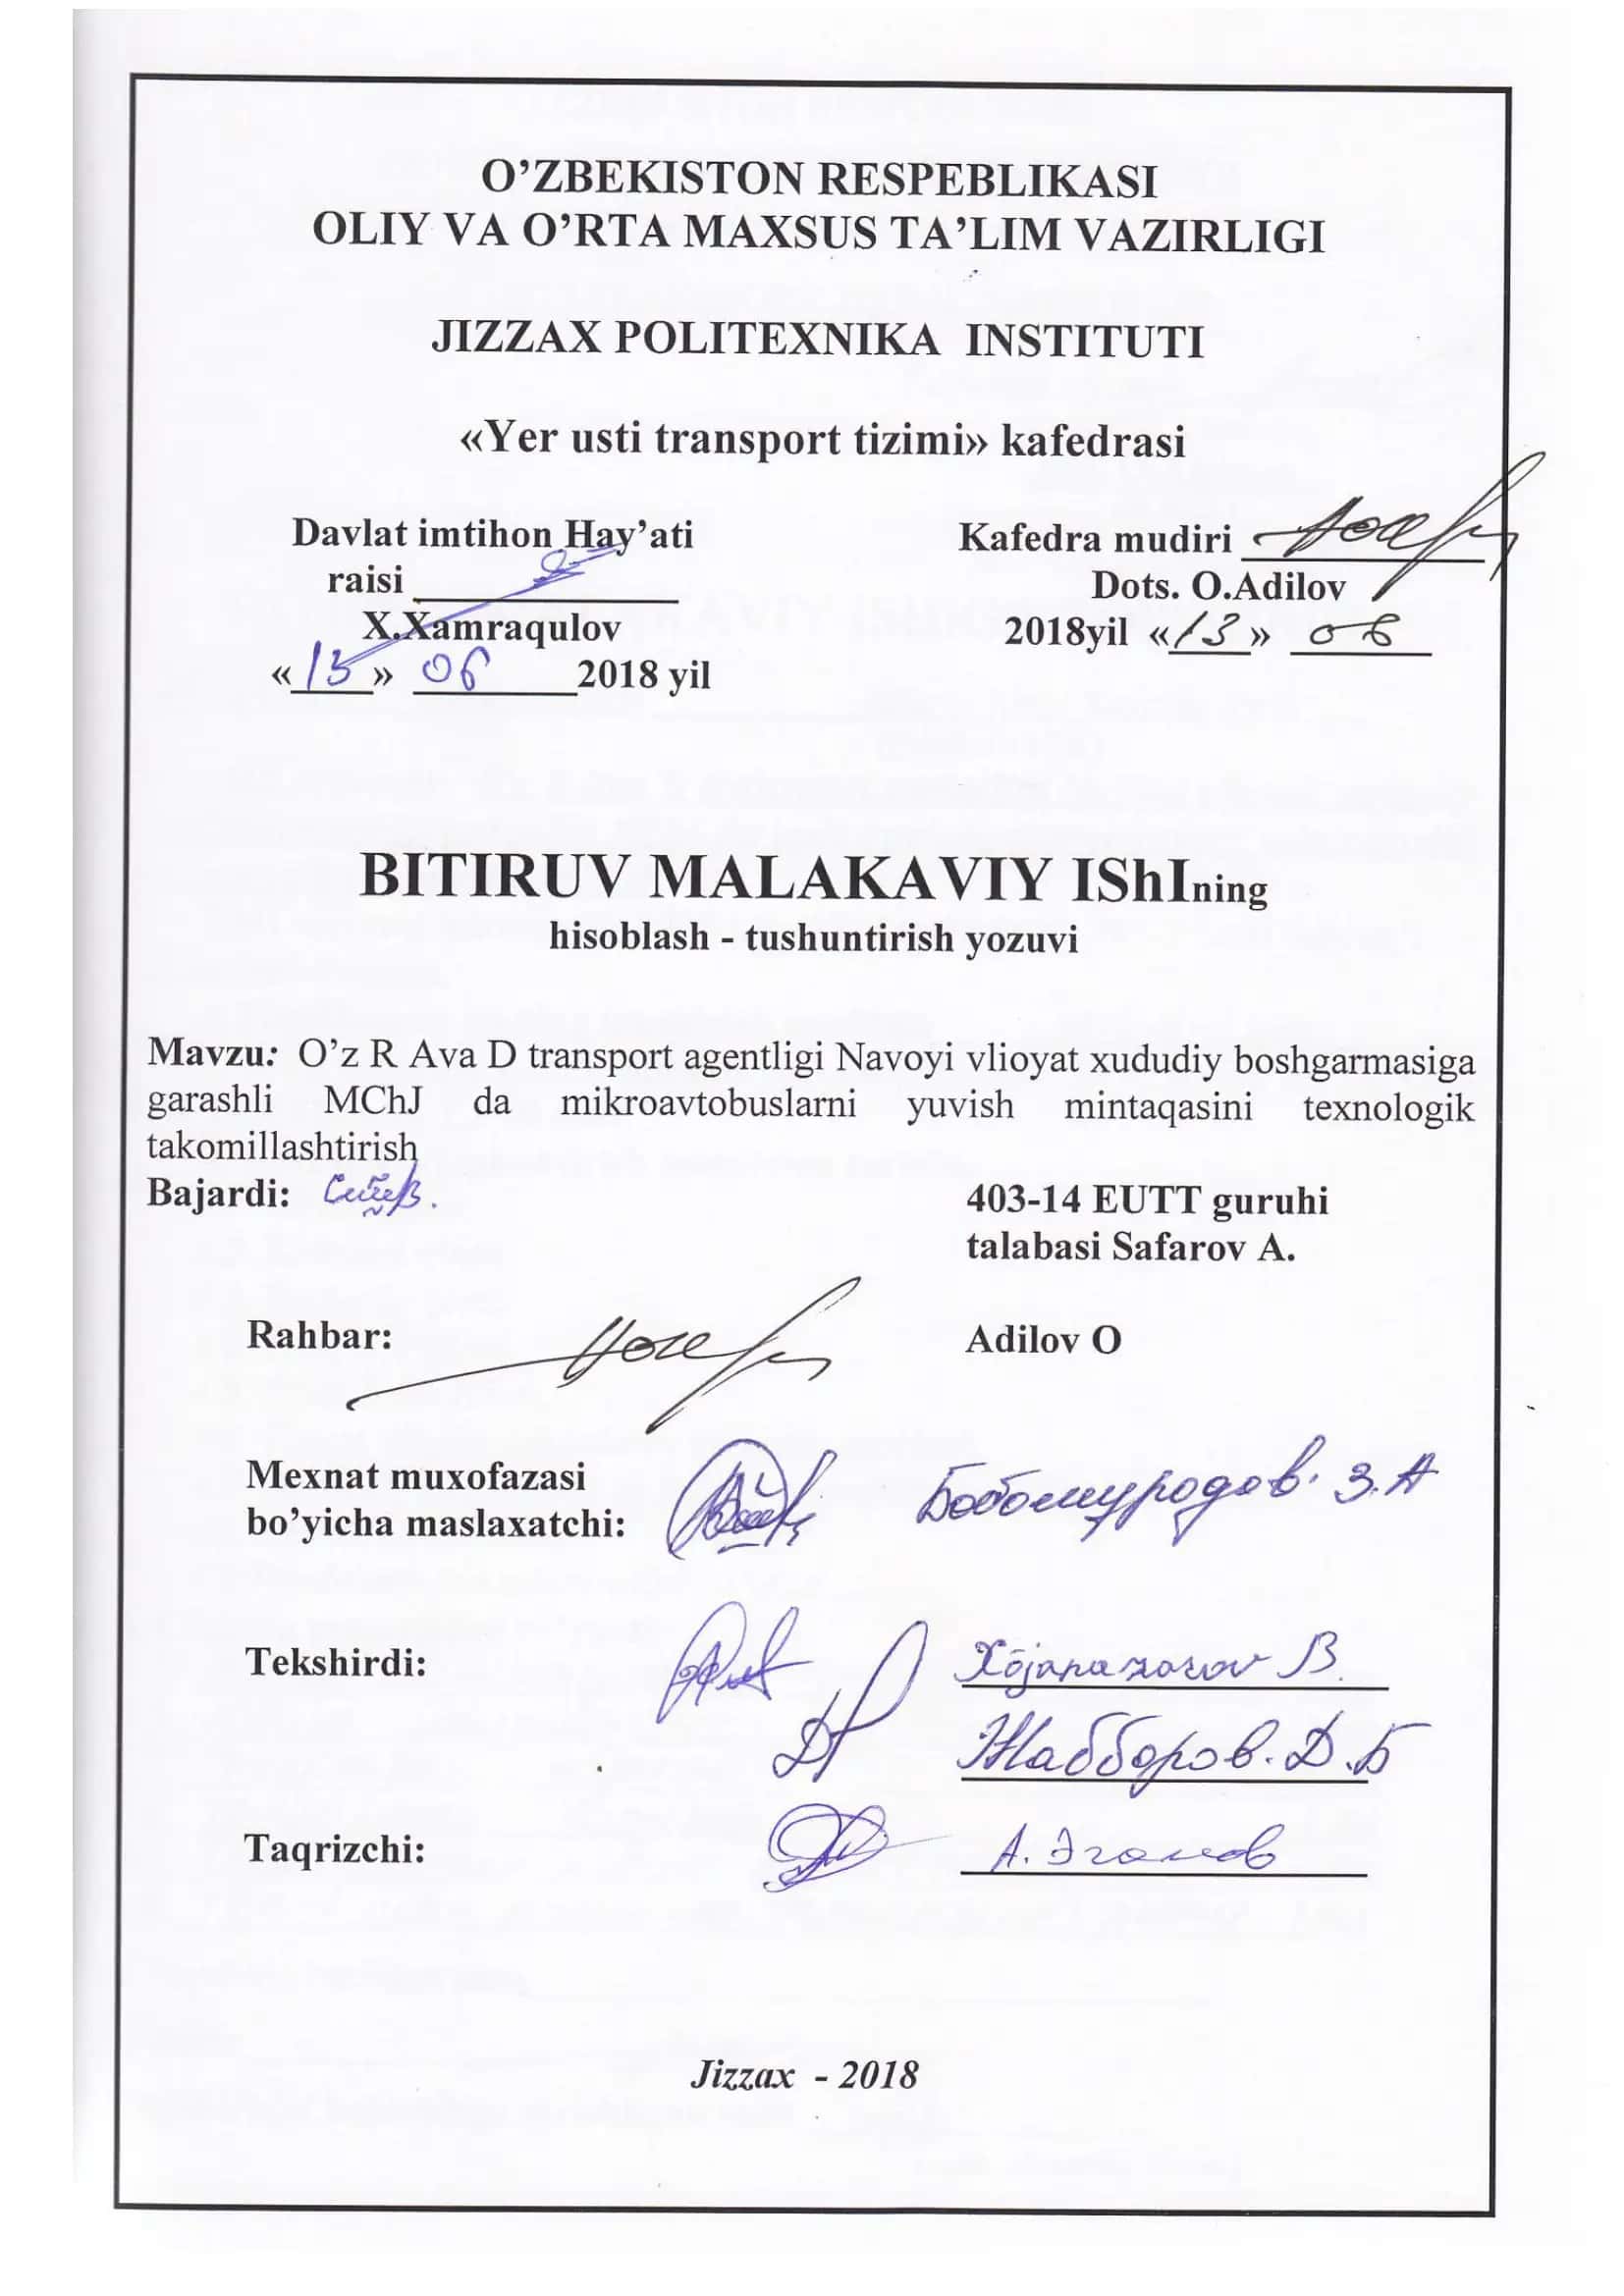 O’ZBEKISTON RESPEBLIKASI
OLIY VA O’RTA MAXSUS TA’LIM VAZIRLIGI
JIZZAX POLITEXNIKA INSTITUTI
«Yer usti transport tizimi» kafedrasi
Davlat imtihon Hay’ati
raisi
X.Xamraqulov
«13» 06 2018 yil
Kafedra mudiri
Dots. O.Adilov
2018yil «13» 06
BITIRUV MALAKAVIY IShIning
hisoblash - tushuntirish yozuvi
Mavzu: O’z R Ava D transport agentligi Navoyi vlioyat xududiy boshgarmasiga
garashli MChJ da mikroavtobuslarni yuvish mintaqasini texnologik
takomillashtirish
Bajardi:
403-14 EUTT guruhi
talabasi Safarov A.
Rahbar: Adilov O
Mexnat muxofazasi
bo’yicha maslaxatchi: Бобомуродов. З.А
Tekshirdi: Xo‘janazarov B.
Жабборов. Д.Б
Taqrizchi: А. Эгамов
Jizzax - 2018